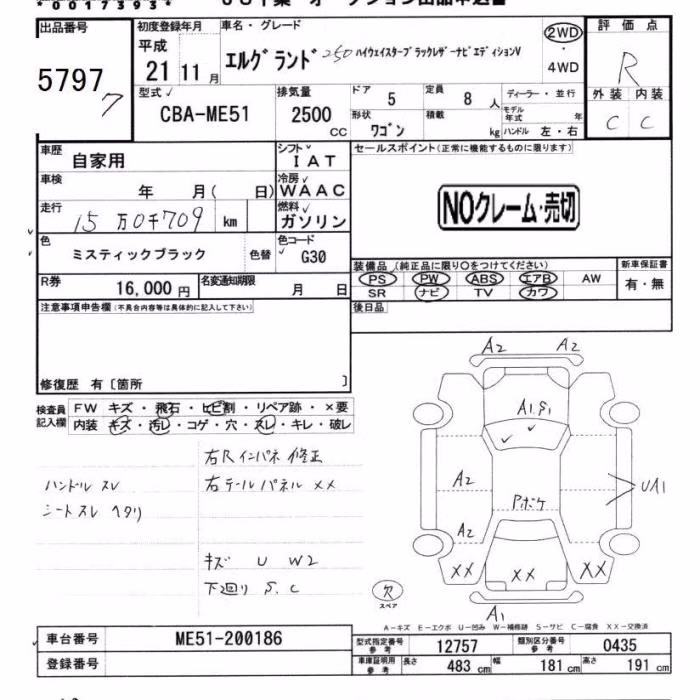 *00173593*
出品番号
5797
7
初度登録年月
平成
21 11月
車名・グレード
エルグランド 250 ハイウェイスターブラックレザーナビエディションV
2WD
・
4WD
評価点
R
外装 内装
C C
型式
CBA-ME51
排気量
2500
CC
ドア 5
定員 8 人
ディーラー・並行
形状 ワゴン
積載 kg
モデル年式 年
ハンドル 左・右
車歴 自家用
シフト IAT
車検 年 月( 日)
冷房 WAAC
走行 15万0千709 km
燃料 ガソリン
色 ミスティックブラック 色替
色コード G30
R券 16,000円
名変通知期限 月 日
セールスポイント(正常に機能するものに限ります)
NOクレーム・売切
装備品(純正品に限り○をつけてください)
PS PW ABS エアB AW
SR ナビ TV カワ
新車保証書
有・無
後日品
注意事項申告欄(不具合内容等は具体的に記入して下さい)
修復歴 有〔箇所 〕
検査員記入欄
FW キズ・飛石・ヒビ割・リペア跡・×要
内装 キズ・汚レ・コゲ・穴・スレ・キレ・破レ
右Rインパネ 修正
ハンドル スレ
右テールパネル ××
シートスレ ヘタリ
キズ U W2
下廻り S.C
A2 A2
A1.S1
A2
UA1
Pボケ
A2
×× ×× ××
欠
スペア
A1
A-キズ E-エクボ U-凹み W-補修跡 S-サビ C-腐食 XX-交換済
車台番号 ME51-200186
登録番号
型式指定番号 参考 12757
類別区分番号 参考 0435
車庫証明用 参考 長さ 483cm 幅 181cm 高さ 191cm